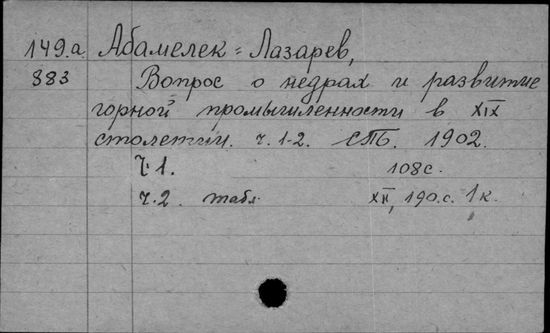 149.а Абамелек-Лазарев,
883 Вопрос о недрах и развитие
горной промышленности в XIX
столетии. ч. 1-2. СПБ. 1902.
ч. 1. 108 с.
ч. 2. табл. XII, 190.с. 1 к.